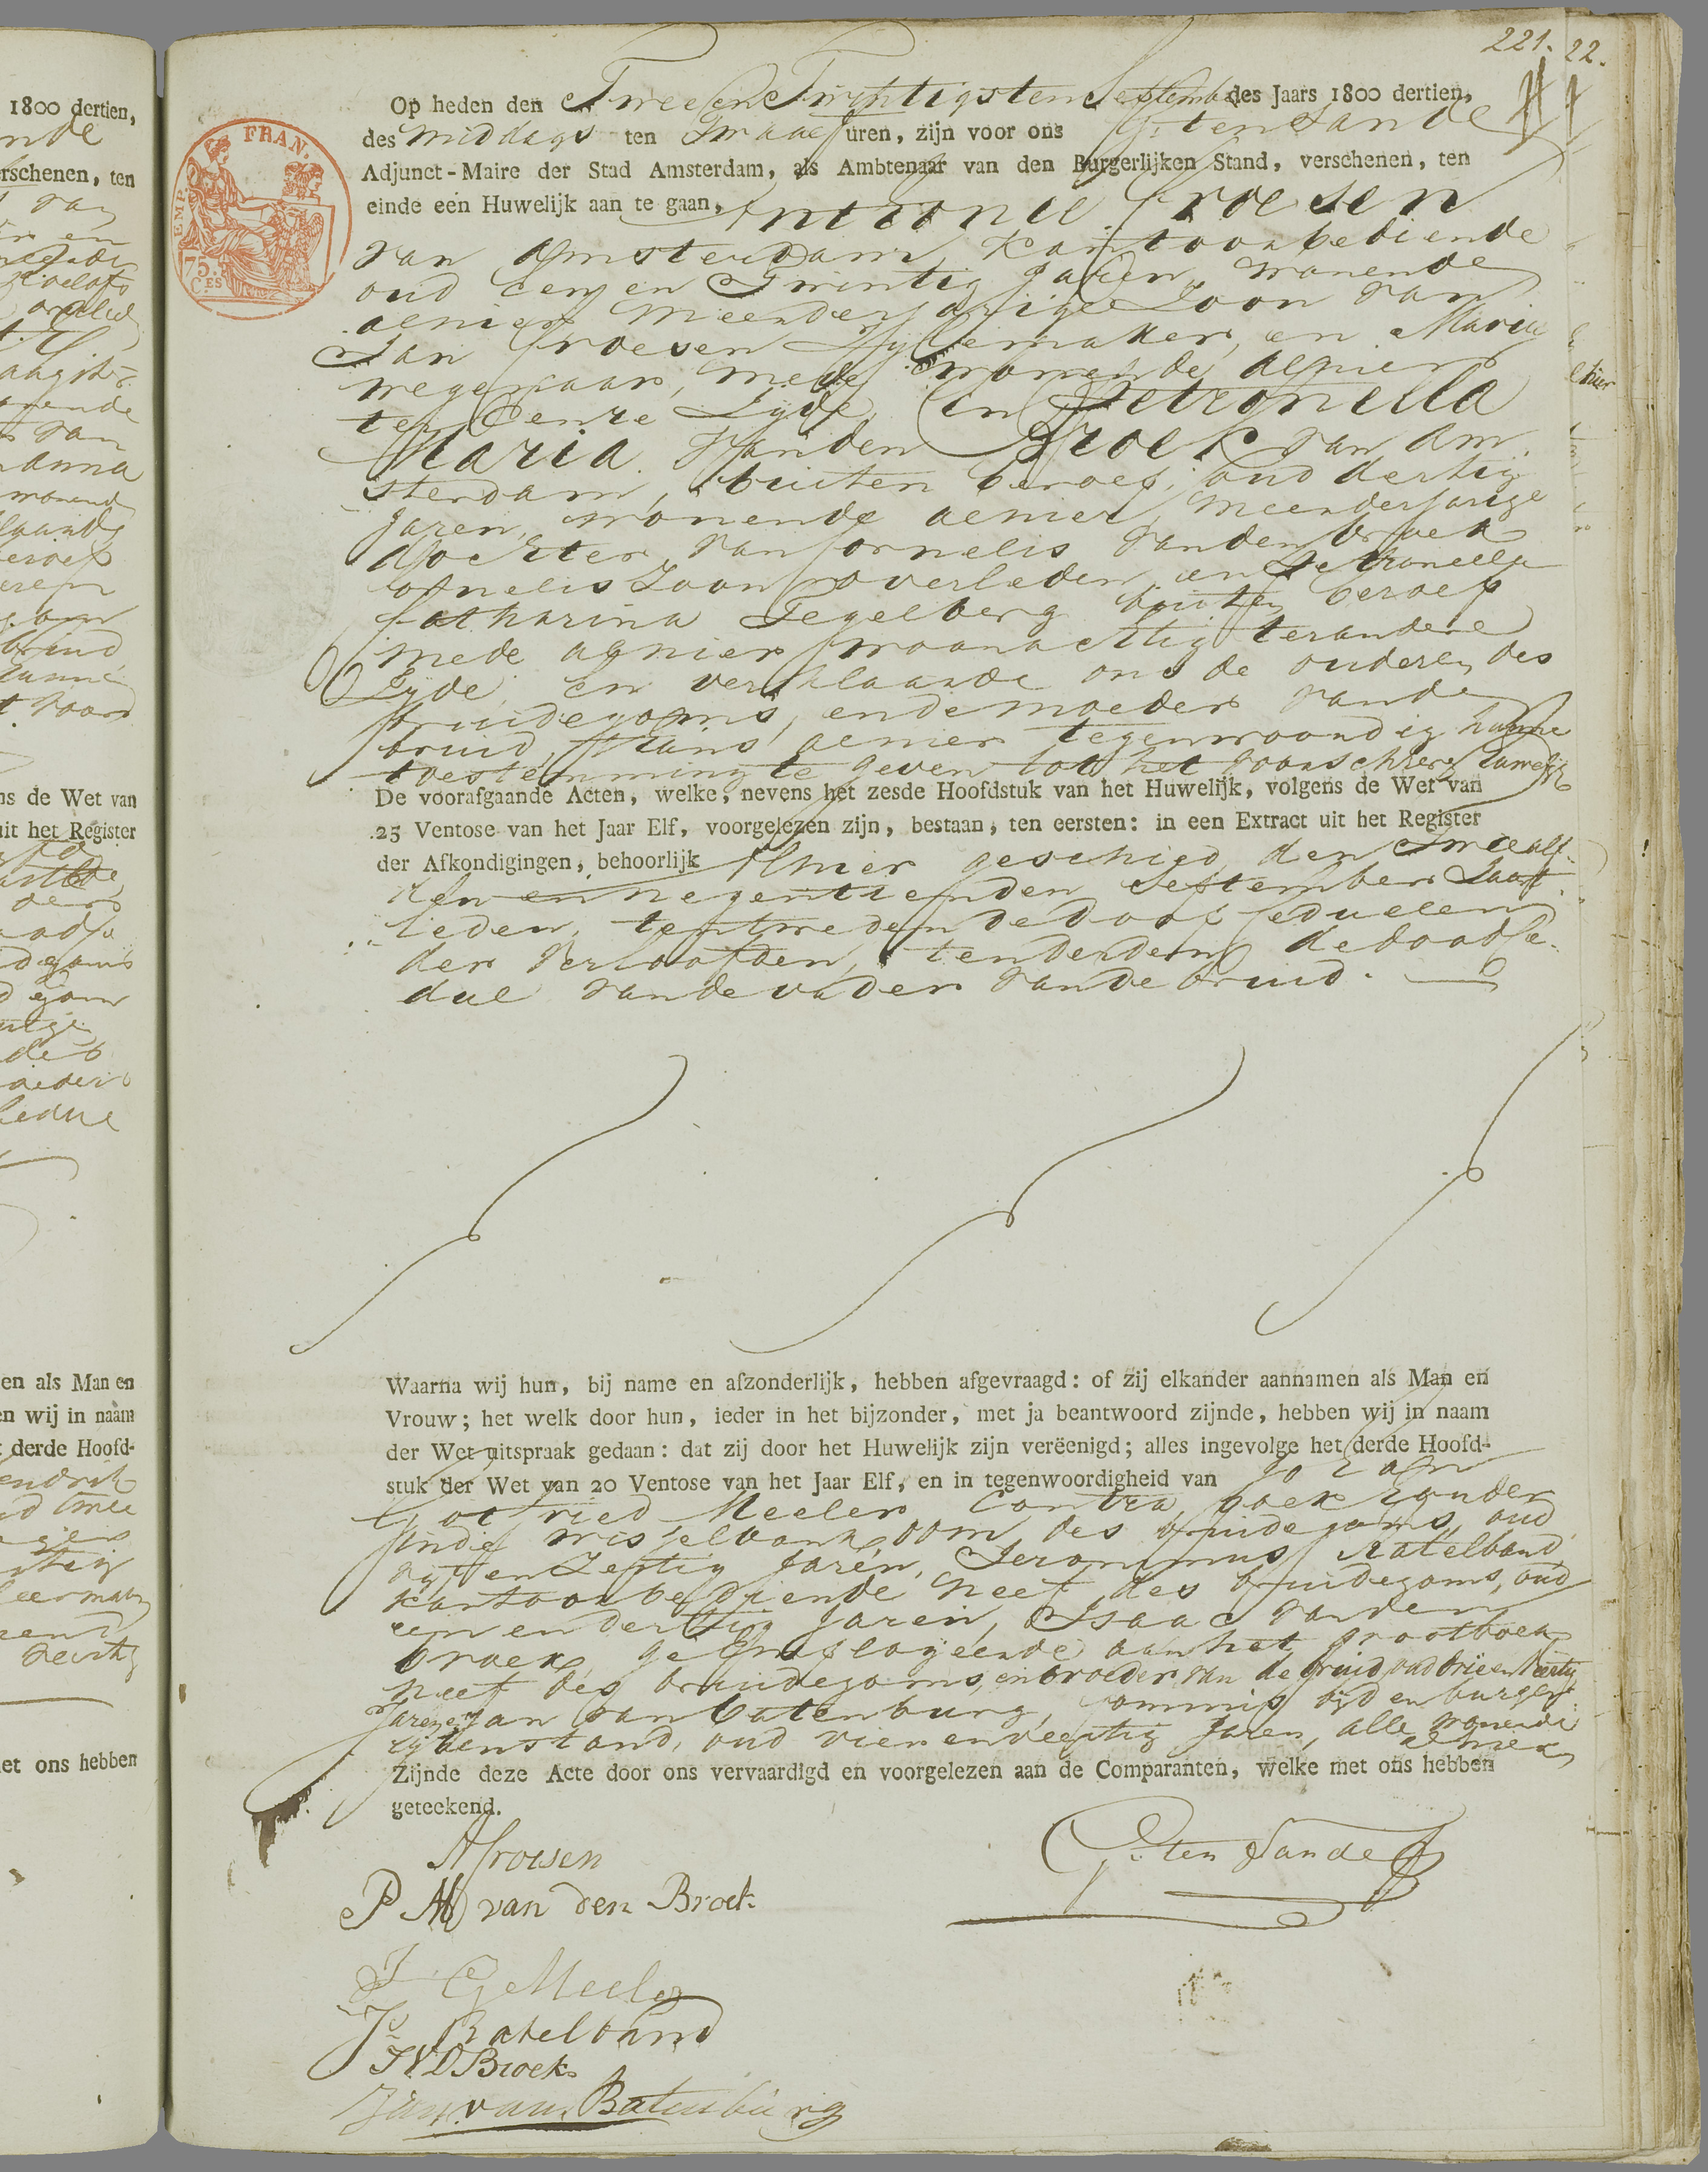 221.
22.
Op heden den Twee en Twintigsten September des Jaars 1800 dertien,
des middags ten Twaalf uren, zijn voor ons G: ten Sande
Adjunct-Maire der Stad Amsterdam, als Ambtenaar van den Burgerlijken Stand, verschenen, ten
einde een Huwelijk aan te gaan, Antionie Croesen
van Amsterdam, kantoorbediende
oud een en Twintig Jaren, wonende
alhier meerderjarige Zoon van
Jan Croesen Stijfemaker, en Maria
wegenaar, mede wonende alhier
ter Eenre Zyde, En Petronella
Maria vanden Broek van Am
sterdam, buiten beroep, oud dertig
Jaren, wonende alhier, meerderjarige
dochter van Cornelis vanden broek
Cornelis Zoon overleden, en Petronella
Catharina Tegelberg buiten beroep
mede alhier woonachtig terandere
Zyde, en verklaarde ons de ouderen des
bruidegoms, ende moeder vande
bruid, thans alhier tegenwoordig hunne
toestemming te geven tot het voorschreven Huwelijk
De voorafgaande Acten, welke, nevens het zesde Hoofdstuk van het Huwelijk, volgens de Wet van
25 Ventose van het Jaar Elf, voorgelezen zijn, bestaan, ten eersten: in een Extract uit het Register
der Afkondigingen, behoorlijk Alhier geschied den Twaalf-
den en negentienden September Laast
leden, ten tweden de doop cedueelen
der Verloofden, ten derden de doodce-
dul vande vader vande bruid.
Waarna wij hun, bij name en afzonderlijk, hebben afgevraagd: of zij elkander aannamen als Man en
Vrouw; het welk door hun, ieder in het bijzonder, met ja beantwoord zijnde, hebben wij in naam
der Wet uitspraak gedaan: dat zij door het Huwelijk zijn verëenigd; alles ingevolge het derde Hoofd-
stuk der Wet van 20 Ventose van het Jaar Elf, en in tegenwoordigheid van Johan
Gotfried Meeler Contra boek houder
inde wisselbank, oom des bruidegoms, oud
vyf en Zestig Jaren, Jeronimus Ratelband
kantoorbediende neef des bruidegoms, oud
een en dertig Jaren, Isaac vanden
broek, geEmployeerde aan het grootboek
neef des bruidegoms, en broeder van de bruid, oud drie en veertig
Jaren, en Jan van batenburg, commis by den burger
lyken stand, oud vier en veertig Jaren, alle wonende
alhier
Zijnde deze Acte door ons vervaardigd en voorgelezen aan de Comparanten, welke met ons hebben
geteekend.
A Croesen
G: ten Sande
P M van den Broek
J G Meeler
Js Ratelband
I V D Broek
Jan van Batenburg